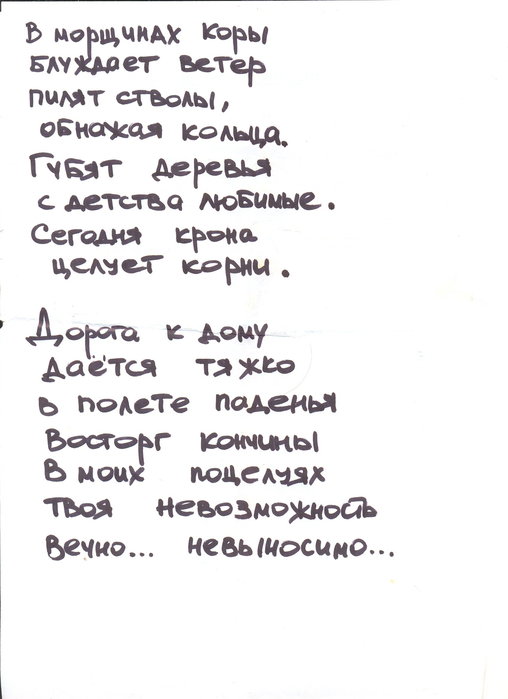 В морщинах коры
блуждает ветер
пилят стволы,
обнажая кольца.
Губят деревья
с детства любимые.
Сегодня крона
целует корни.
Дорога к дому
даётся тяжко
в полете паденья
Восторг кончины
В моих поцелуях
твоя невозможность
вечно... невыносимо...